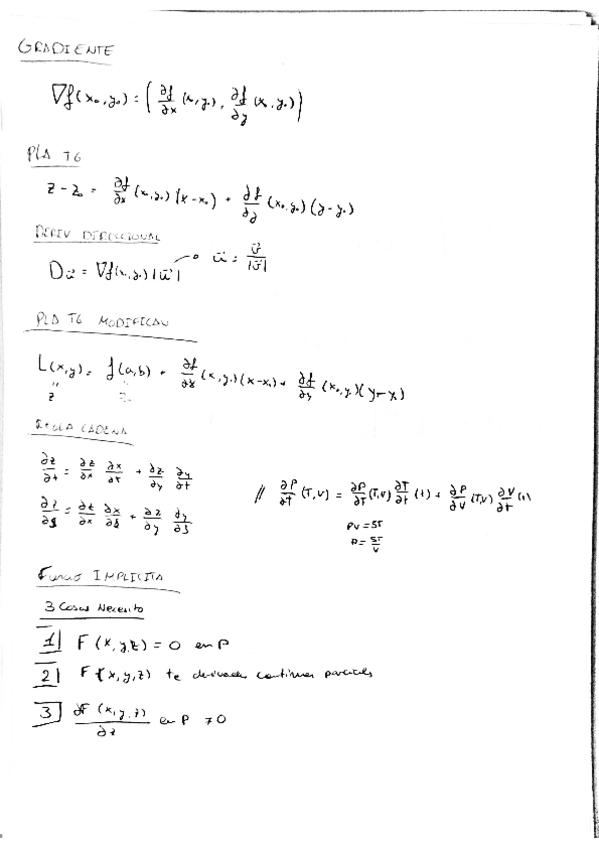 GRADIENTE
∇f(x₀,y₀) = ( ∂f/∂x (x₀,y₀), ∂f/∂y (x₀,y₀) )
PLA TG
z - z₀ = ∂f/∂x (x₀,y₀)(x-x₀) + ∂f/∂y (x₀,y₀)(y-y₀)
DERIV DIRECCIONAL
Dū = ∇f(x₀,y₀) |ū| → ū = v̄/|v̄|
PLA TG MODIFICAU
L(x,y) = f(a,b) + ∂f/∂x (x₀,y₀)(x-x₀) + ∂f/∂y (x₀,y₀)(y-
" "
z z₀
REGLA CADENA
∂z/∂t = ∂z/∂x ∂x/∂t + ∂z/∂y ∂y/∂t
// ∂P/∂t (T,V) = ∂P/∂T (T,V) ∂T/∂t (t) + ∂P/∂V (T,V) ∂V/∂t (t)
∂z/∂s = ∂z/∂x ∂x/∂s + ∂z/∂y ∂y/∂s
PV = 5T
P = 5T/V
Funcio IMPLICITA
3 Cosas Necesito
1| F(x,y,z) = 0 en P
2| F(x,y,z) te derivades continues parciales
3| ∂F(x,y,z)/∂z en P ≠ 0